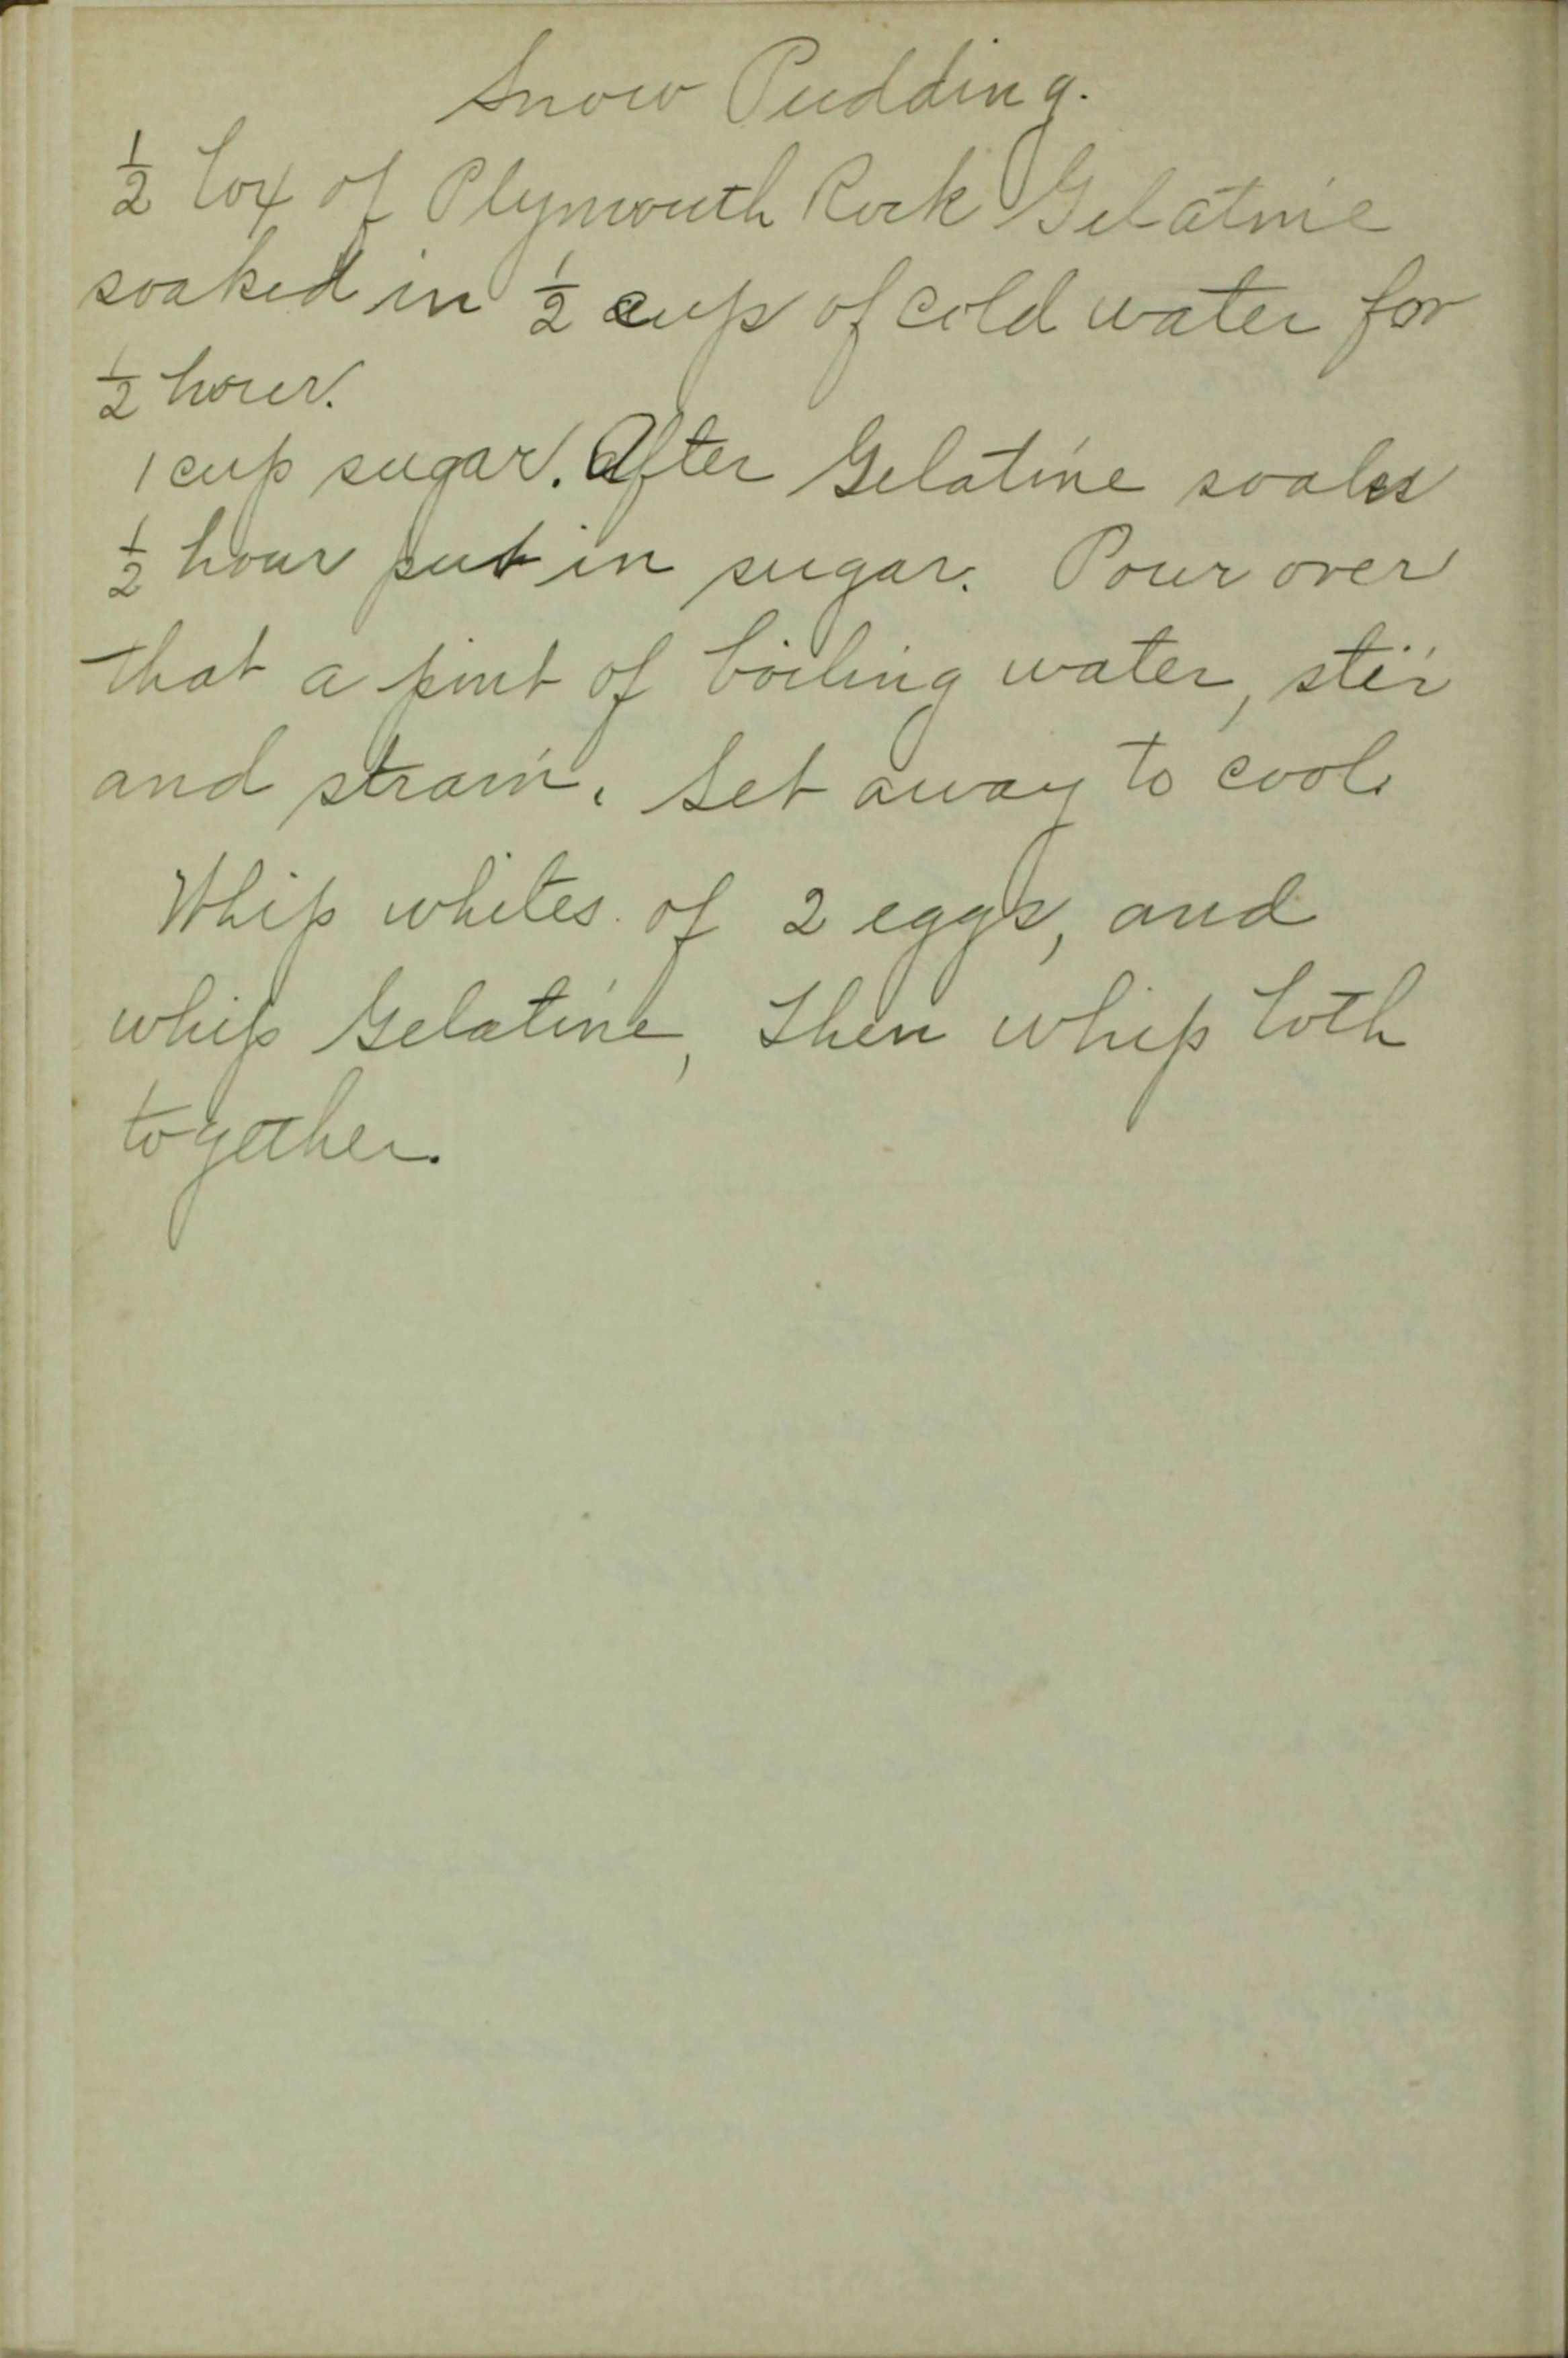 Snow Pudding.
½ box of Plymouth Rock Gelatine
soaked in ½ cup of cold water for
½ hour.
1 cup sugar. After Gelatine soaks
½ hour put in sugar. Pour over
that a pint of boiling water, stir
and strain. Set away to cool.
Whip whites of 2 eggs, and
whip Gelatine, then whip both
together.